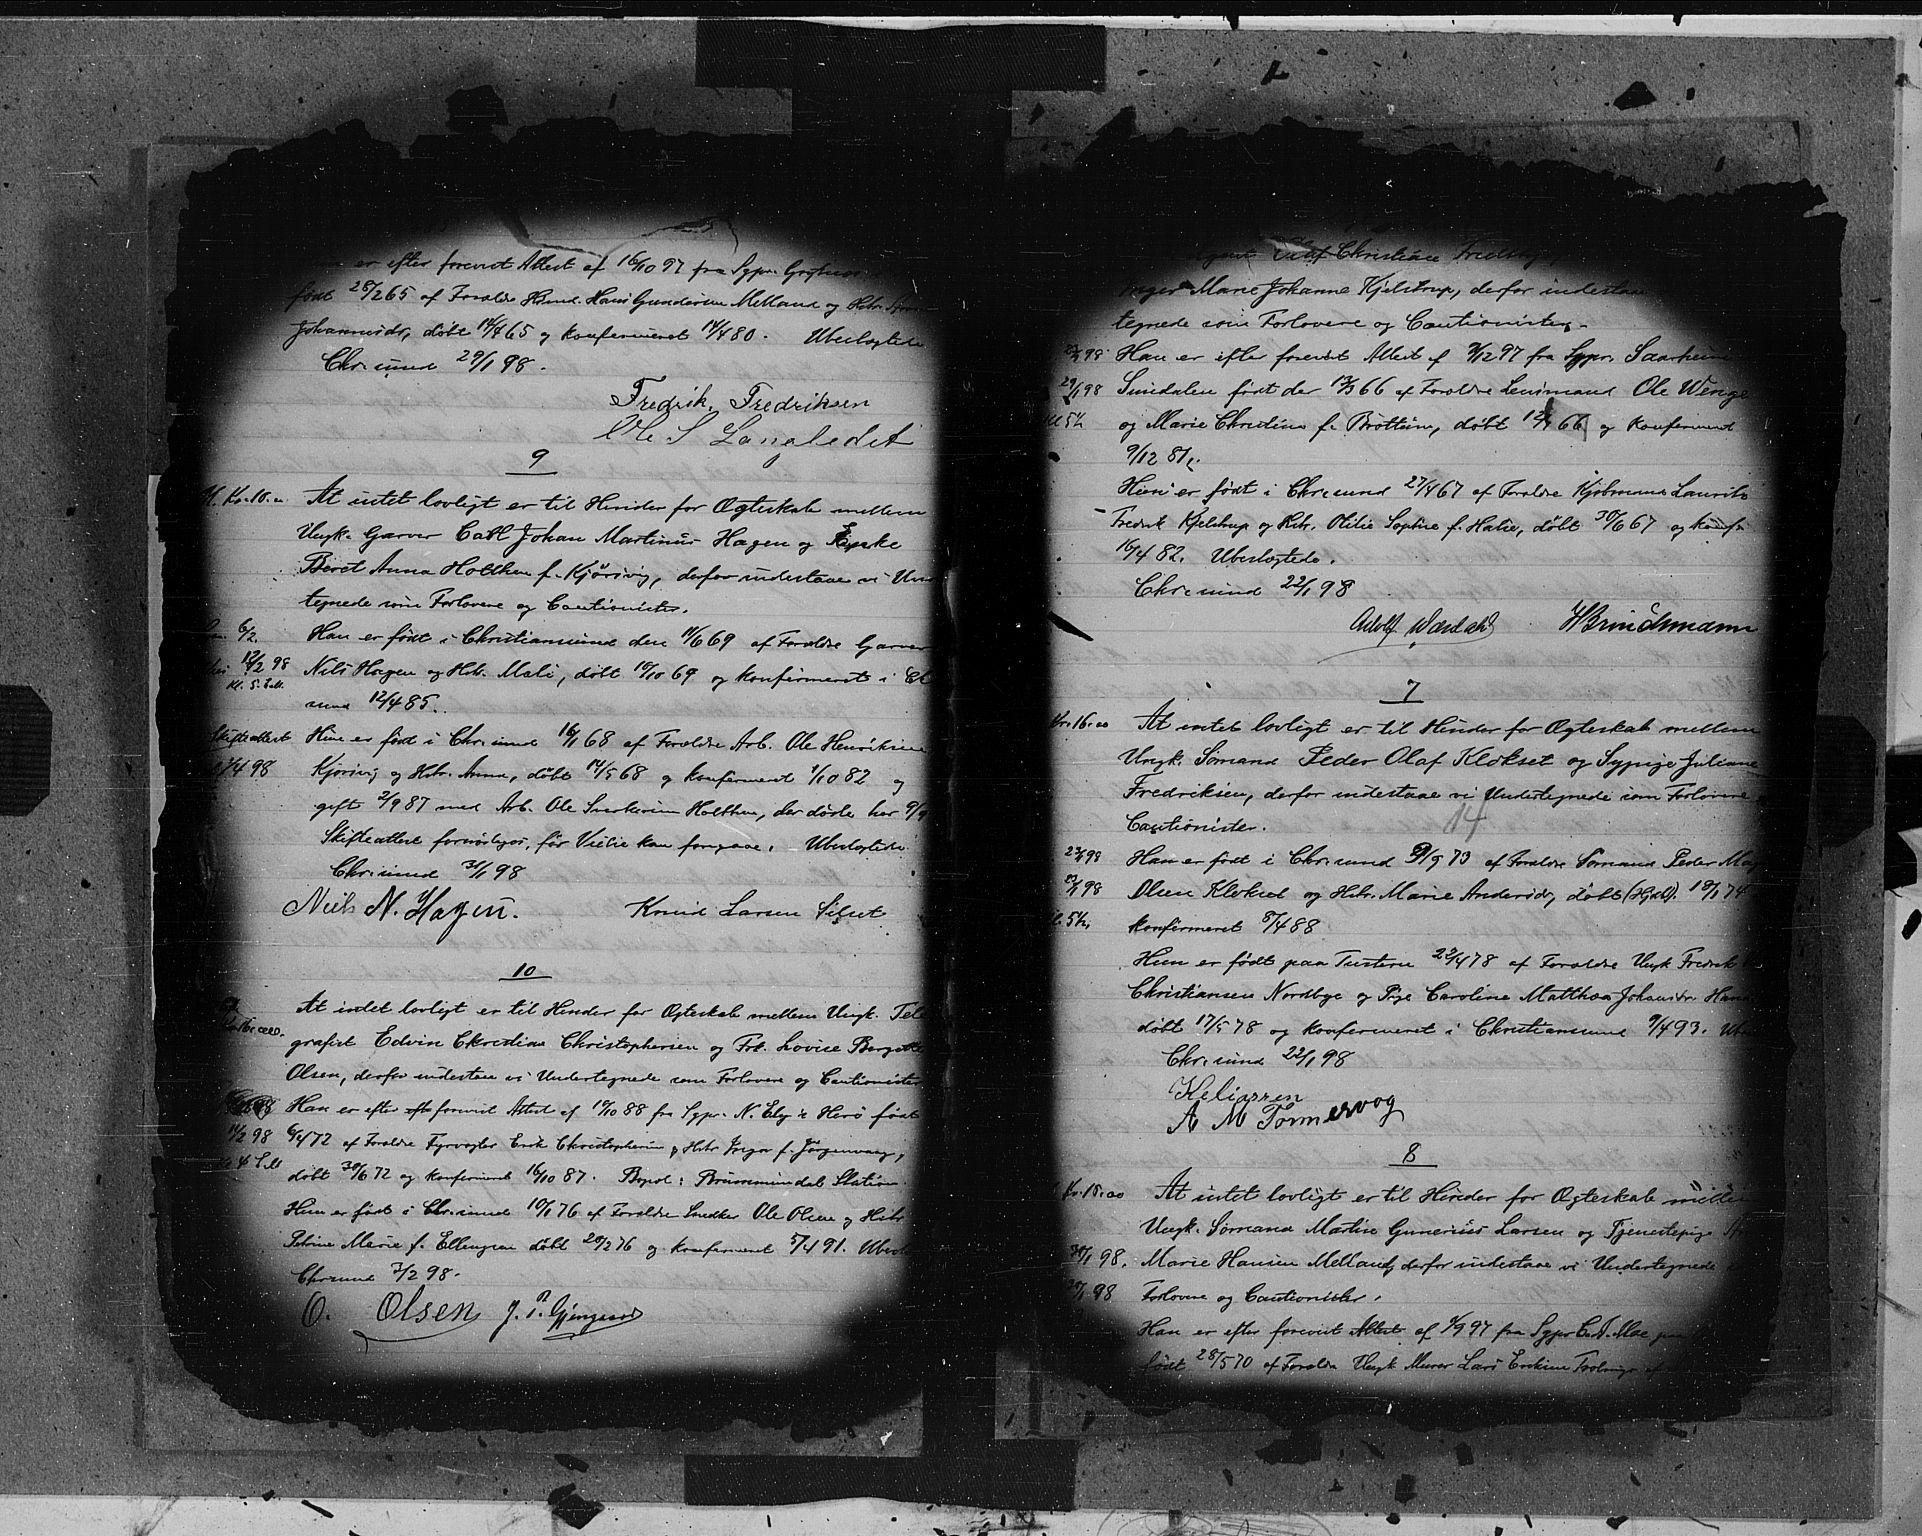 er efter forevist Attest af 16/10 97 fra Sgpr.
født 28/2 65 af Forældre Hsmd. Hans Gundersen Melland og Hstr.
Johannesdr, døbt 14/4 65 og konfirmeret 14/4 80. Ubeslægtede
Chr.sund 29/1 98.
Fredrik Fredriksen
Ole S Langledet
9
Kr. 10.00
At intet lovligt er til Hinder for Ægteskab mellem
Ungk. Garver Carl Johan Martinus Hagen og Enke
Beret Anna Holthen f. Kjørsvig, derfor indestaae vi Un
tegnede som Forlovere og Cautionister.
6/2.
Han er født i Christiansund den 11/6 69 af Forældre Garver
12/2 98
Nils Hagen og Hstr. Mali, døbt 10/10 69 og konfirmeret i Ch
Kl. 5
sund 12/4 85.
Skifteattest
Hun er født i Chr.sund 16/1 68 af Forældre Arb. Ole Henriksen
7/4 98
Kjørsvig og Hstr. Anna, døbt 14/5 68 og konfirmeret 1/10 82 og
gift 2/9 87 med Arb. Ole Holthen, der døde her
Skifteattest fornødiges, før Vielse kan foregaae. Ubeslægtede
Chr.sund 31/1 98
Niels N. Hagen. Knud Larsen
10
At intet lovligt er til Hinder for Ægteskab mellem Ungk. Tele
grafist Edvin Christian Christophersen og Frk. Lovise Bergitte
Olsen, derfor indestaa vi Undertegnede som Forlovere og Cautionister
Han er efter forevist Attest af 19/10 88 fra Sgpr. N. i Herø født
11/2 98
6/4 72 af Forældre Fyrvogter Erik Christophersen og Hstr Inger f. Jørgenvaag,
døbt 30/6 72 og konfirmeret 16/10 87. Bopæl: Brummundal Station.
Hun er født i Chr.sund 10/1 76 af Forældre Snedker Ole Olsen og Hstr
Petrine Marie f. Ellingsen døbt 20/2 76 og konfirmeret 5/4 91. Ubesl
Chrsund 3/2 98.
O. Olsen J. P. Gjengaard
Christian
Inger Marie Johanne Kjelstrup, derfor indestaa
tegnede som Forlovere og Cautionister.
98
Han er efter forevist Attest af 9/12 97 fra Sgpr. Saarheim
29/1 98
Sundalen født der 13/3 66 af Forældre Lensmand Ole Wenge
Kl 5½
og Marie Christine f. Brottum, døbt 66 og konfirmeret
9/12 81.
Hun er født i Chr.sund 27/4 67 af Forældre Kjøbmand Laurits
Fredrik Kjelstrup og Hstr. Otilie Sophie f. Halse, døbt 30/6 67 og konf.
16/4 82. Ubeslægtede.
Chr.sund 22/1 98
Adolf Wardahl H Brinchmann
7
Kr. 16.00
At intet lovligt er til Hinder for Ægteskab mellem
Ungk. Sømand Peder Olaf Klokset og Sypige Juliane
Fredriksen, derfor indestaae vi Undertegnede som Forlovere
14
Cautionister.
23/1 98
Han er født i Chr.sund 9/9 73 af Forældre Sømand Peder
98
Olsen Klokset og Hstr. Marie Andersdr, døbt (Hjdb). 18/1 74
Kl. 5½
konfirmeret 8/4 88
Hun er født paa Tusteren 22/4 78 af Forældre Ungk Fredrik
Christiansen Nordbye og Pige Caroline Matthea Johansdr.
døbt 17/5 78 og konfirmeret i Christiansund 9/4 93.
Chr.sund 22/1 98
K Eliassen
A M Tømmervog
8
Kr. 10.00
At intet lovligt er til Hinder for Ægteskab mellem
Ungk. Sømand Martin Gunerius Larsen og Tjenestepige
30/1 98.
Marie Hansen Melland, derfor indestaae vi Undertegnede
98
Forlovere og Cautionister.
Han er efter forevist Attest af 1/9 97 fra Sgpr
født 28/5 70 af Forældre Ungk Murer Lars Eriksen